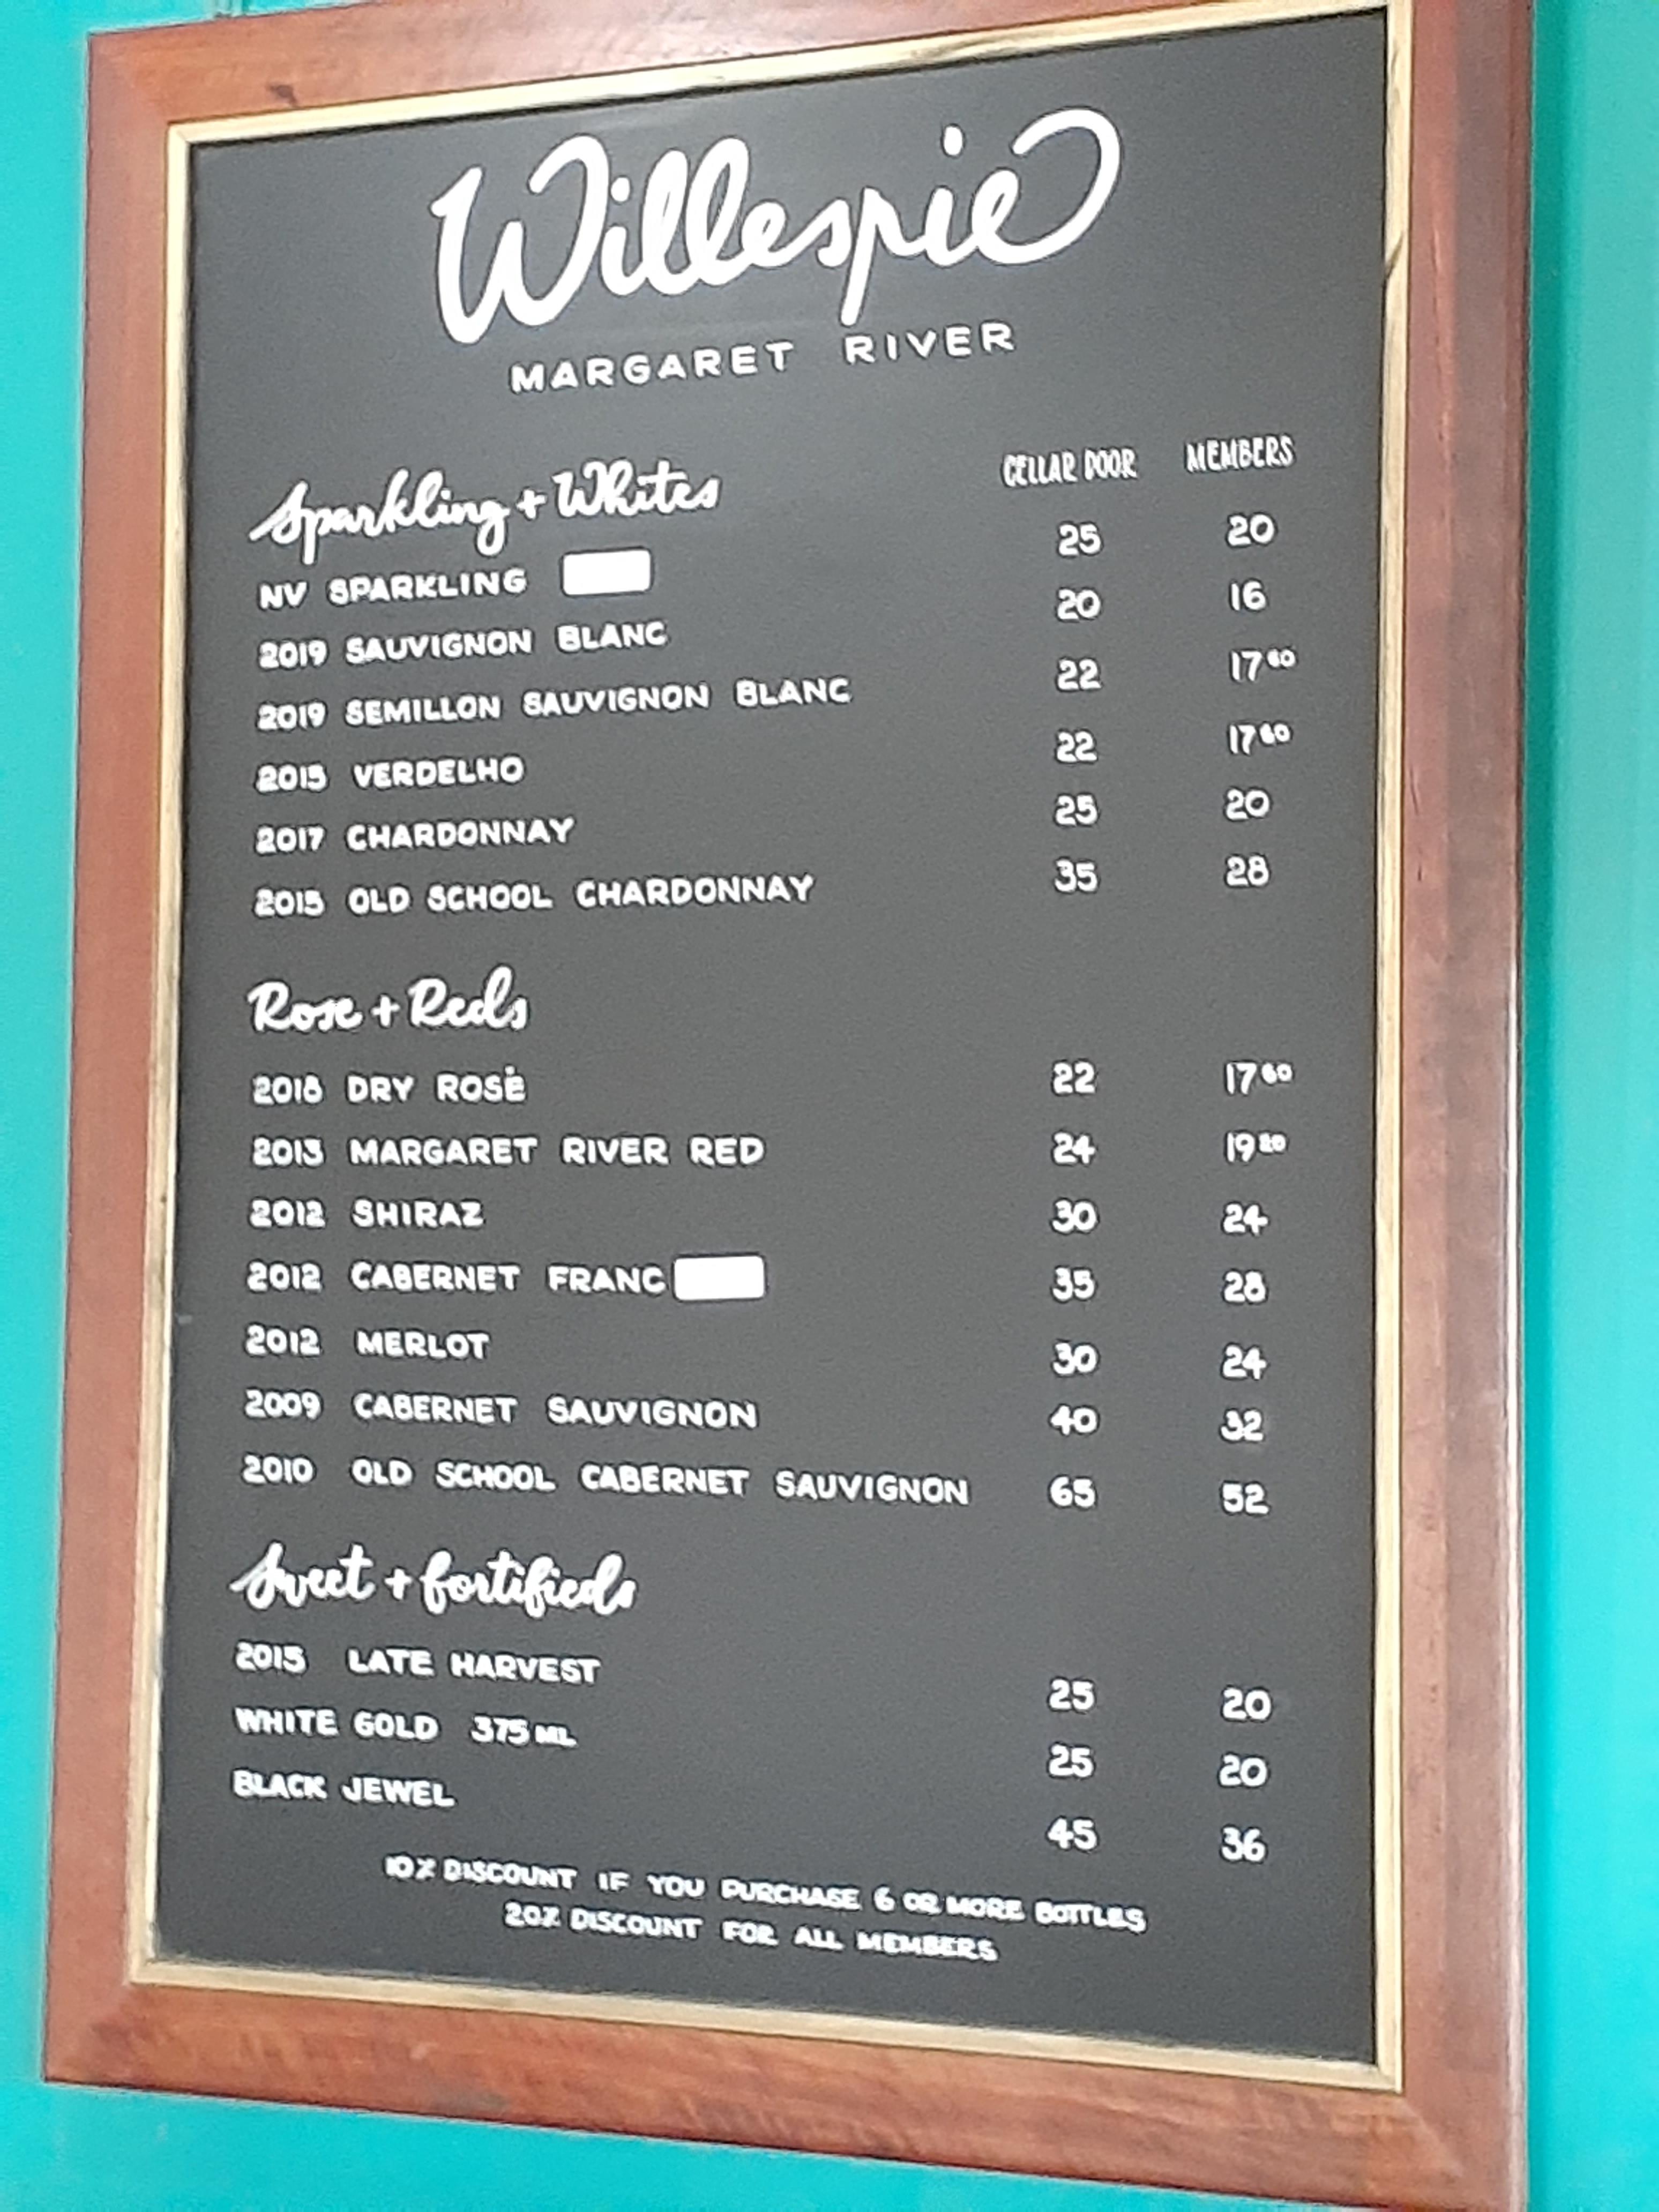 Willespie
MARGARET RIVER
CELLAR DOOR MEMBERS
Sparkling + Whites
NV SPARKLING 25 20
2019 SAUVIGNON BLANC 20 16
2019 SEMILLON SAUVIGNON BLANC 22 17 60
2015 VERDELHO 22 17 60
2017 CHARDONNAY 25 20
2015 OLD SCHOOL CHARDONNAY 35 28
Rose + Reds
2018 DRY ROSÉ 22 17 60
2013 MARGARET RIVER RED 24 19 20
2012 SHIRAZ 30 24
2012 CABERNET FRANC 35 28
2012 MERLOT 30 24
2009 CABERNET SAUVIGNON 40 32
2010 OLD SCHOOL CABERNET SAUVIGNON 65 52
Sweet + fortifieds
2015 LATE HARVEST 25 20
WHITE GOLD 375 ML 25 20
BLACK JEWEL 45 36
10% DISCOUNT IF YOU PURCHASE 6 OR MORE BOTTLES
20% DISCOUNT FOR ALL MEMBERS